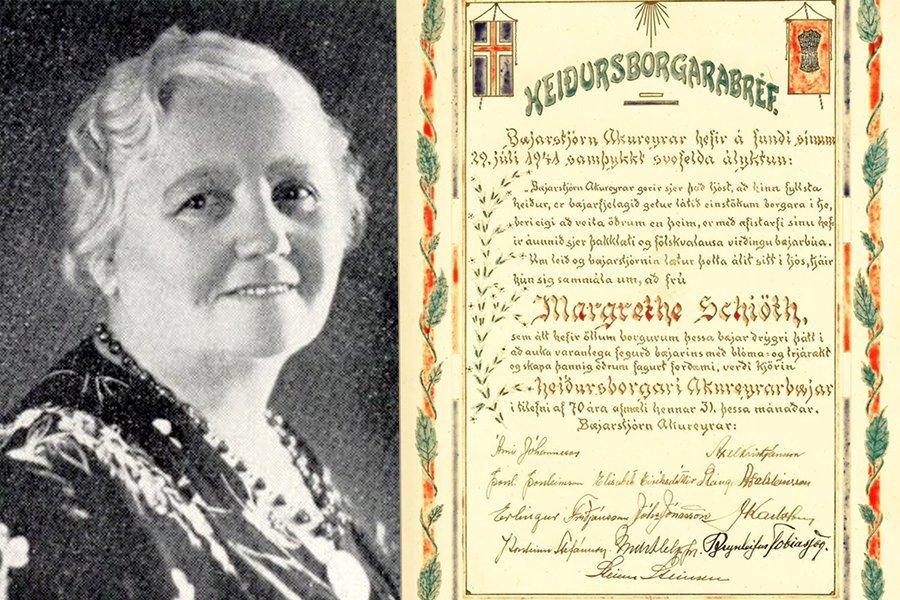 HEIÐURSBORGARABRÉF.
Bæjarstjórn Akureyrar hefir á fundi sínum
29. júlí 1941 samþykkt svofelda ályktun:
„Bæjarstjórn Akureyrar gerir sjer það ljóst, að hinn fyllsta
heiður, er bæjarfjelagið getur látið einstökum borgara í tje,
beri eigi að veita öðrum en þeim, er með æfistarfi sínu hef-
ir áunnið sjer þakklæti og fölskvalausa virðingu bæjarbúa.
Um leið og bæjarstjórnin lætur þetta álit sitt í ljós, tjáir
hún sig sammála um, að frú
Margrethe Schiöth,
sem átt hefir öllum borgurum þessa bæjar drýgri þátt í
að auka varanlega fegurð bæjarins með blóma- og trjárækt
og skapa þannig öðrum fagurt fordæmi, verði kjörin
heiðursborgari Akureyrarbæjar
í tilefni af 70 ára afmæli hennar 31. þessa mánaðar.
Bæjarstjórn Akureyrar:
Árni Jóhannsson Axel Kristjánsson
Þorst. Þorsteinsson Elísabet Eiríksdóttir
Erlingur Friðjónsson
Jakob Karlsson
Stefánsson Brynleifur Tobiasson.
Steinn Steinsen